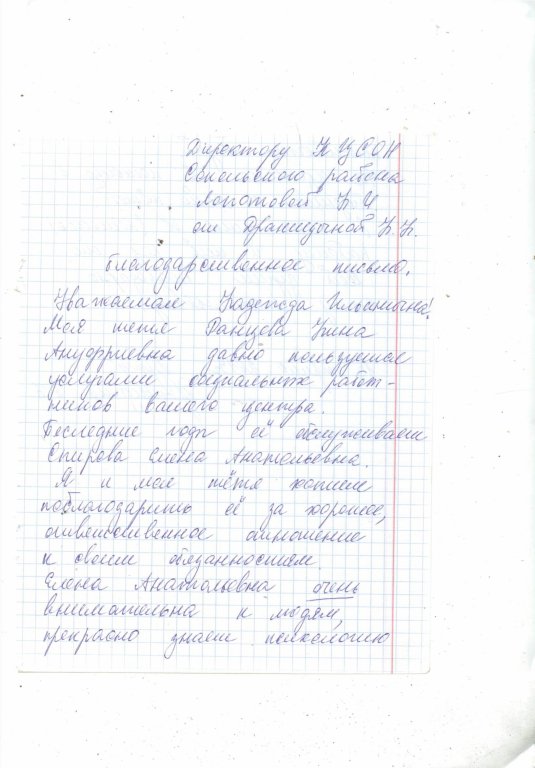 Директору КЦСОН
Сокольского района
Лопотовой Н.И
от Драницыной Н.К.
Благодарственное письмо.
Уважаемая Надежда Ильинична!
Моя тётя Ранцева Нина
Ануфриевна давно пользуется
услугами социальных работ-
ников вашего центра.
Последние годы её обслуживает
Спирова Елена Анатольевна.
Я и моя тётя хотим
поблагодарить её за хорошее,
ответственное отношение
к своим обязанностям.
Елена Анатольевна очень
внимательна к людям,
прекрасно знает психологию